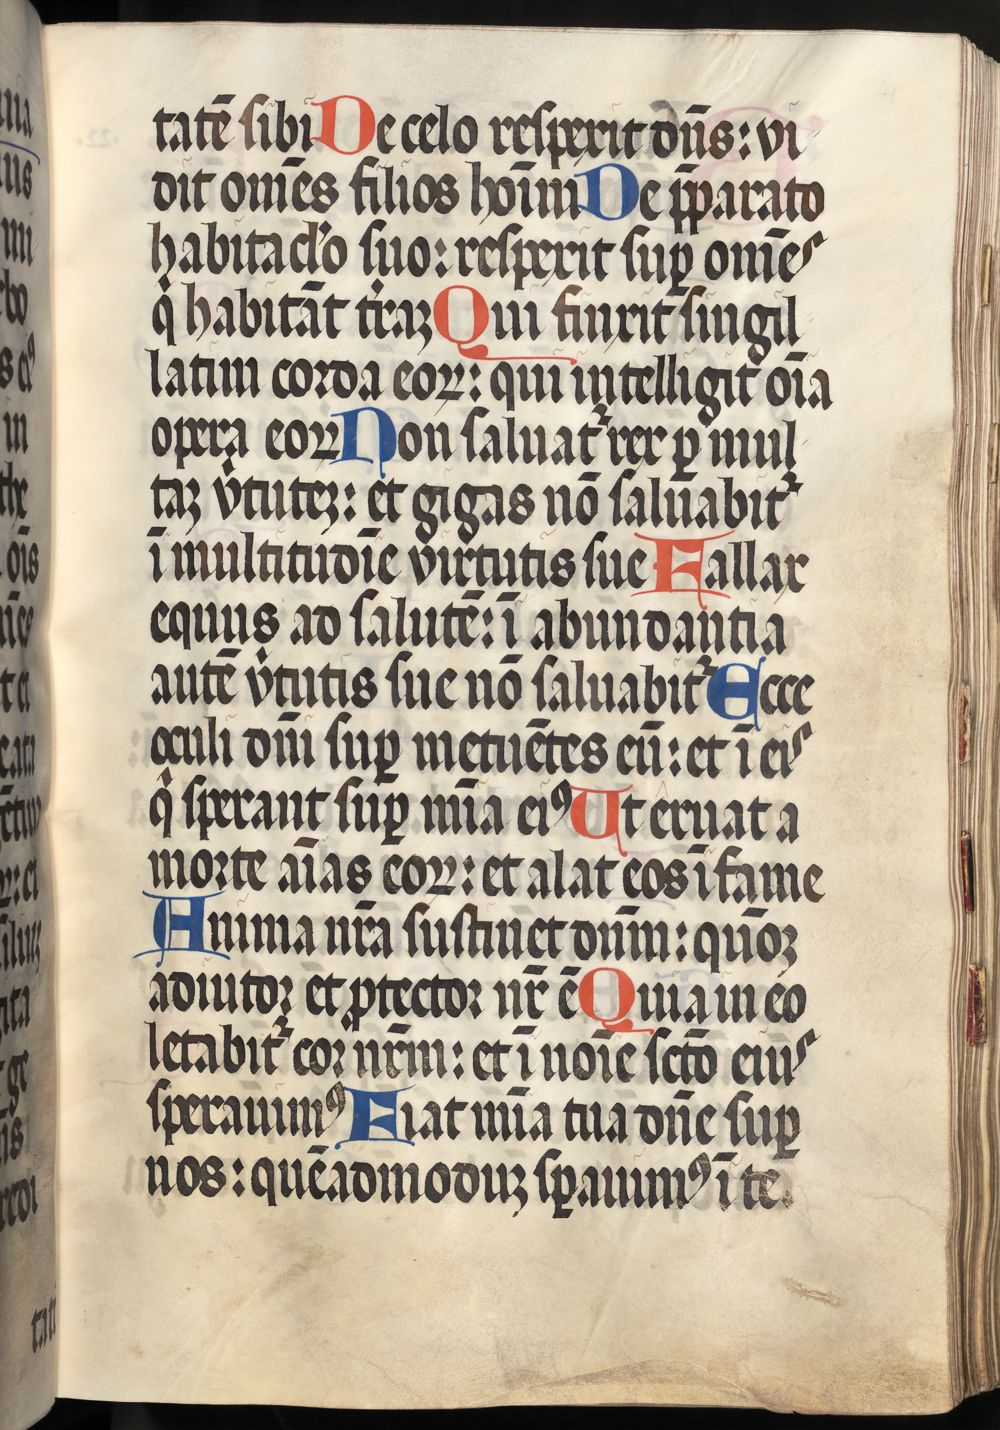 tatē sibi De celo respexit dn̄s: vi
dit om̄es filios hoīm De p̄parato
habitaclo suo: respexit sup̱ om̄es
q̇ habitāt tr̄aʒ Qui finxit singil
latim corda eoꝝ: qui intelligit oīa
opera eoꝝ Non saluat᷑ rex ꝑ mul
taʒ v̇tuteʒ: et gigas nō saluabit᷑
ī multitudīe virtutis sue Fallax
equus ad salutē: ī abundantia
autē v̇tutis sue nō saluabit᷑ Ecce
oculi dn̄i suꝑ metuētes eū: et ī eis
q̇ sperant suꝑ mīa eiꝰ Ut eruat a
morte aīas eoꝝ: et alat eos ī fame
Anima nr̄a sustinet dn̄m: qm̄oʒ
adiutor et ꝓtector nr̄ ē Quia in eo
letabit᷑ cor nr̄m: et ī noīe scō eius
sperauimꝰ Fiat mīa tua dn̄e suꝑ
nos: quēadmoduʒ sꝑauimꝰ ī te.